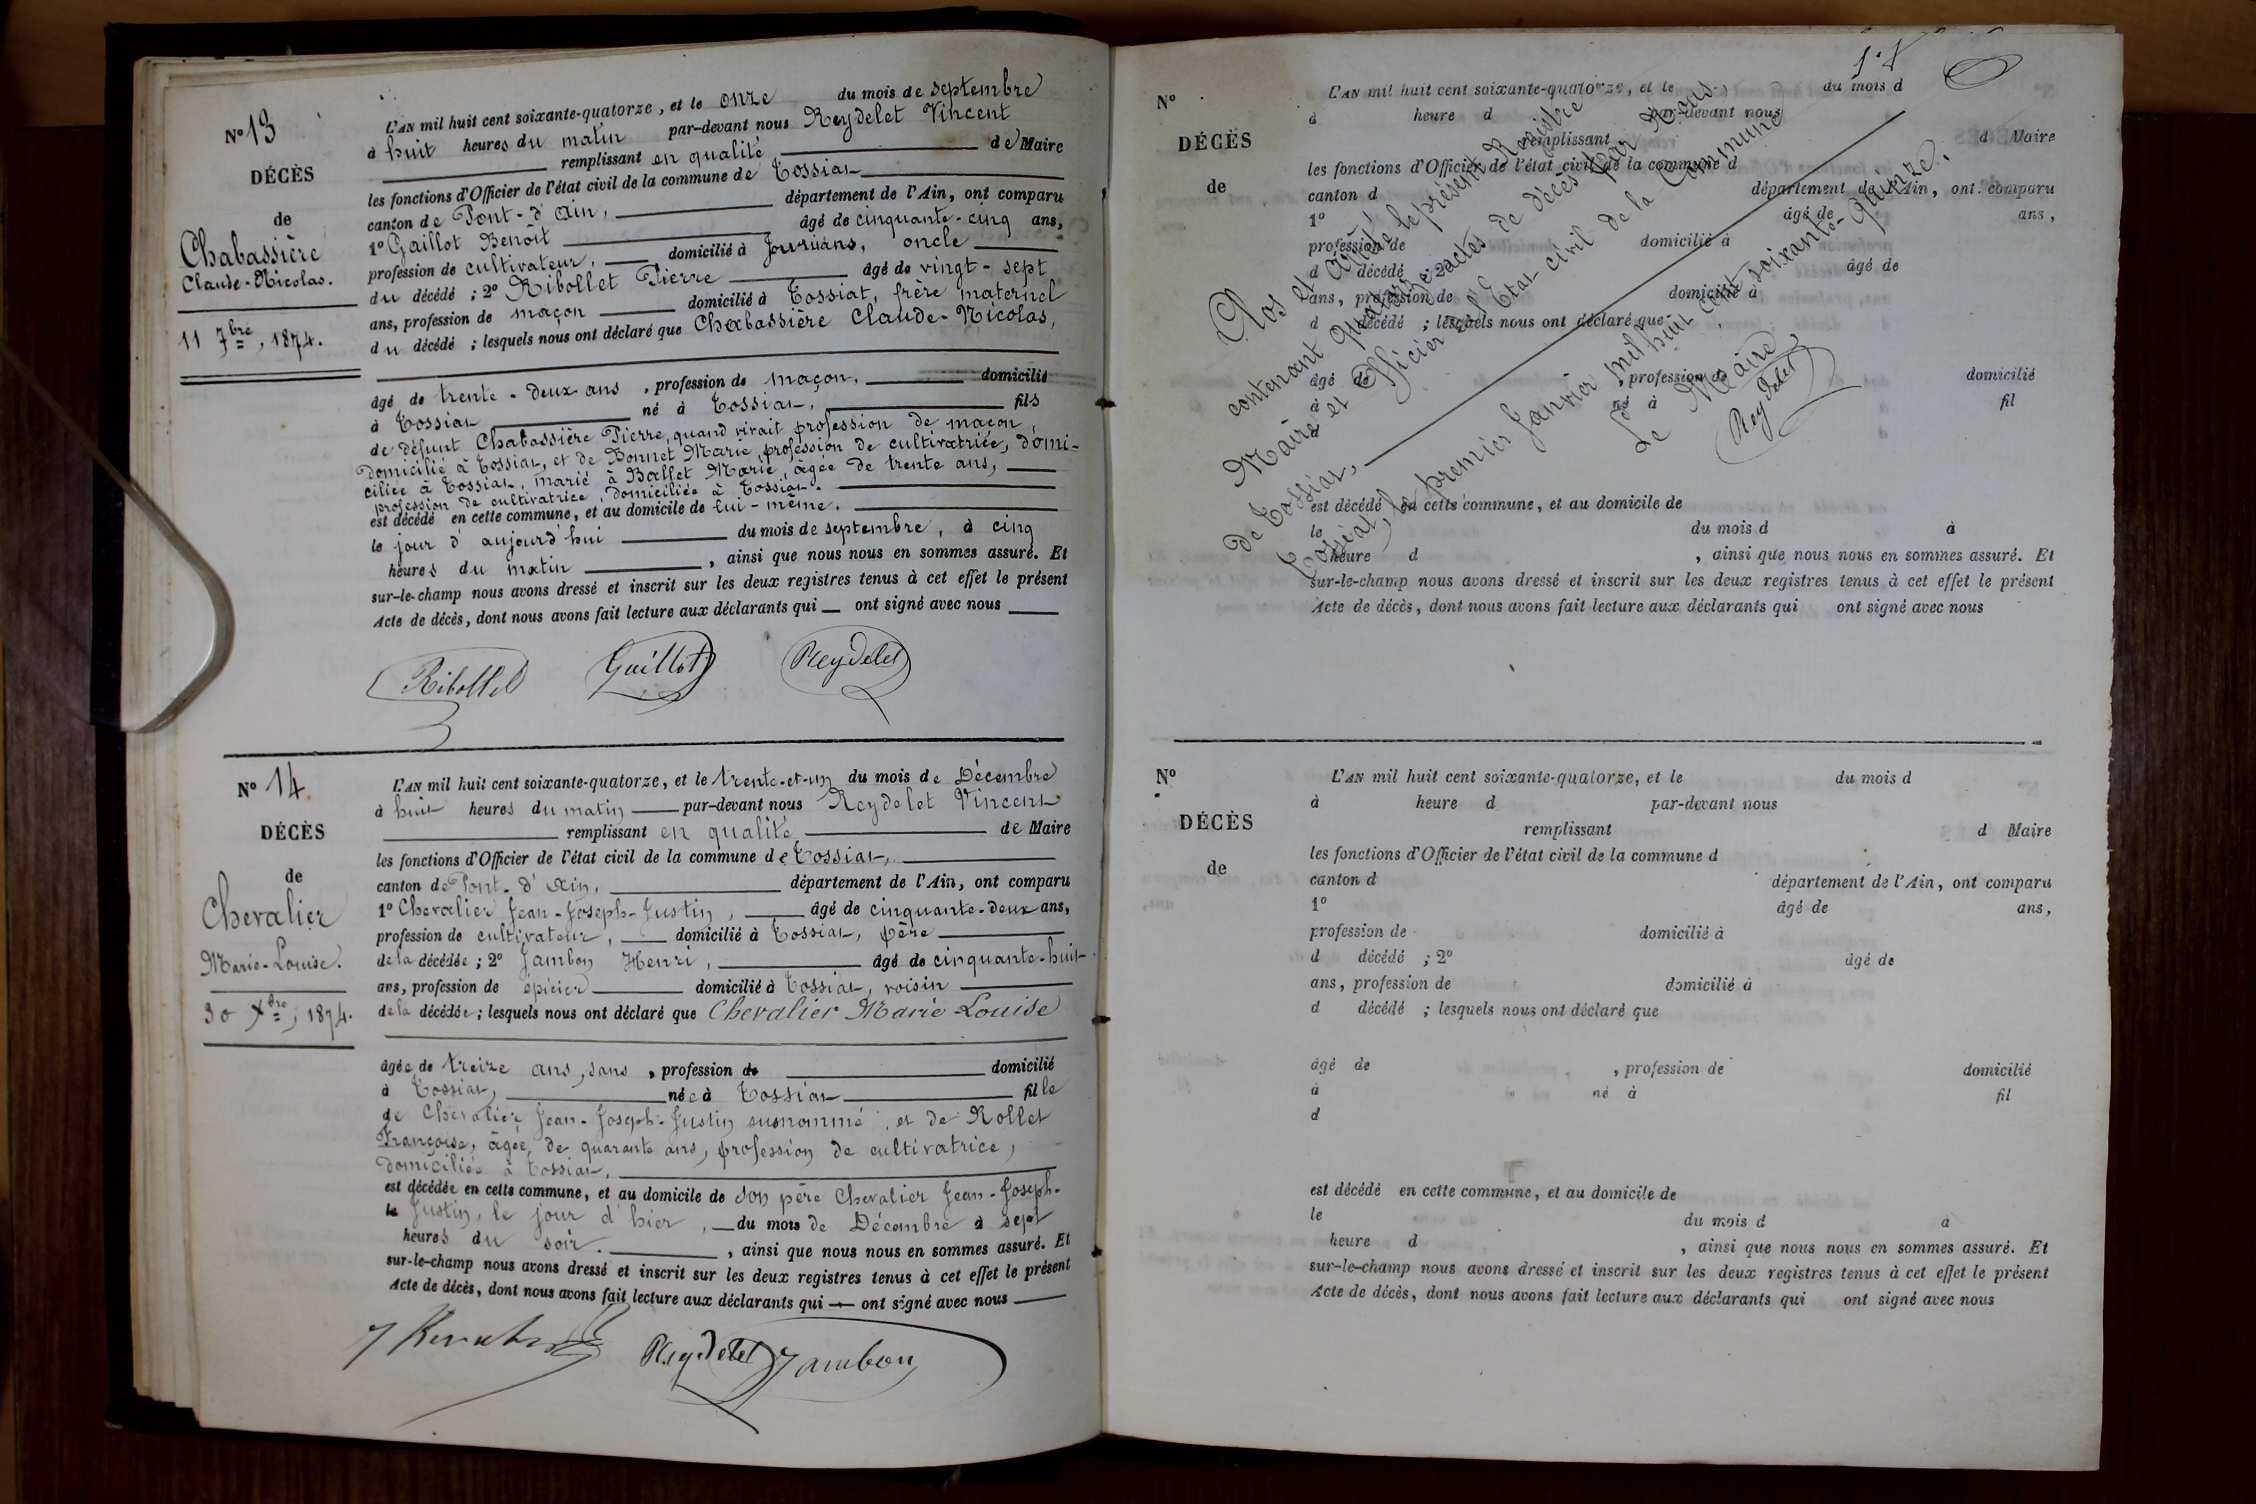 N° 13
DÉCÈS
de
Chabassière
Claude-Nicolas.
11 7bre, 1874.
L'AN mil huit cent soixante-quatorze, et le onze du mois de septembre
à huit heures du matin par-devant nous Reydelet Vincent
remplissant en qualité de Maire
les fonctions d'Officier de l'état civil de la commune de Tossiat
canton de Pont-d'Ain, département de l'Ain, ont comparu
1° Gaillot Benoît âgé de cinquante-cinq ans,
profession de cultivateur, domicilié à Journans, oncle
du décédé ; 2° Ribollet Pierre âgé de vingt-sept
ans, profession de maçon domicilié à Tossiat, frère maternel
du décédé ; lesquels nous ont déclaré que Chabassière Claude-Nicolas,
âgé de trente-deux ans, profession de maçon, domicilié
à Tossiat né à Tossiat, fils
de défunt Chabassière Pierre, quand vivait profession de maçon,
domicilié à Tossiat, et de Bonnet Marie, profession de cultivatrice, domi-
ciliée à Tossiat, marié à Ballet Marie, âgée de trente ans,
profession de cultivatrice, domiciliée à Tossiat.
est décédé en cette commune, et au domicile de lui-même.
le jour d'aujourd'hui du mois de septembre, à cinq
heures du matin, ainsi que nous nous en sommes assuré. Et
sur-le-champ nous avons dressé et inscrit sur les deux registres tenus à cet effet le présent
Acte de décès, dont nous avons fait lecture aux déclarants qui — ont signé avec nous
Ribollet Guillot Reydelet
N° 14.
DÉCÈS
de
Chevalier
Marie-Louise.
30 Xbre, 1874.
L'AN mil huit cent soixante-quatorze, et le trente-et-un du mois de Décembre
à huit heures du matin par-devant nous Reydelet Vincent
remplissant en qualité de Maire
les fonctions d'Officier de l'état civil de la commune de Tossiat,
canton de Pont-d'Ain, département de l'Ain, ont comparu
1° Chevalier Jean-Joseph-Justin, âgé de cinquante-deux ans,
profession de cultivateur, domicilié à Tossiat, père
de la décédée ; 2° Jambon Henri, âgé de cinquante-huit
ans, profession de épicier domicilié à Tossiat, voisin
de la décédée ; lesquels nous ont déclaré que Chevalier Marie-Louise
âgée de treize ans, sans, profession de domicilié
à Tossiat, née à Tossiat fille
de Chevalier Jean-Joseph-Justin susnommé, et de Rollet
Françoise, âgée de quarante ans, profession de cultivatrice,
domiciliée à Tossiat,
est décédée en cette commune, et au domicile de son père Chevalier Jean-Joseph-
le Justin, le jour d'hier, du mois de Décembre à sept
heures du soir. , ainsi que nous nous en sommes assuré. Et
sur-le-champ nous avons dressé et inscrit sur les deux registres tenus à cet effet le présent
Acte de décès, dont nous avons fait lecture aux déclarants qui — ont signé avec nous
Reydelet Jambon
N°
DÉCÈS
de
L'AN mil huit cent soixante-quatorze, et le du mois d
à heure d par-devant nous
remplissant d Maire
les fonctions d'Officier de l'état civil de la commune d
canton d département de l'Ain, ont comparu
1° âgé de ans,
profession de domicilié à
d décédé ; 2° âgé de
ans, profession de domicilié à
d décédé ; lesquels nous ont déclaré que
âgé de , profession de domicilié
à né à fil
d
est décédé en cette commune, et au domicile de
le du mois d à
heure d , ainsi que nous nous en sommes assuré. Et
sur-le-champ nous avons dressé et inscrit sur les deux registres tenus à cet effet le présent
Acte de décès, dont nous avons fait lecture aux déclarants qui ont signé avec nous
Clos et arrêté le présent Registre
contenant quatorze actes de décès par Nous
Maire et Officier de l'Etat civil de la Commune
de Tossiat,
Tossiat, le premier Janvier mil huit cent soixante-quinze.
Le Maire
Reydelet
N°
DÉCÈS
de
L'AN mil huit cent soixante-quatorze, et le du mois d
à heure d par-devant nous
remplissant d Maire
les fonctions d'Officier de l'état civil de la commune d
canton d département de l'Ain, ont comparu
1° âgé de ans,
profession de domicilié à
d décédé ; 2° âgé de
ans, profession de domicilié à
d décédé ; lesquels nous ont déclaré que
âgé de , profession de domicilié
à né à fil
d
est décédé en cette commune, et au domicile de
le du mois d à
heure d , ainsi que nous nous en sommes assuré. Et
sur-le-champ nous avons dressé et inscrit sur les deux registres tenus à cet effet le présent
Acte de décès, dont nous avons fait lecture aux déclarants qui ont signé avec nous